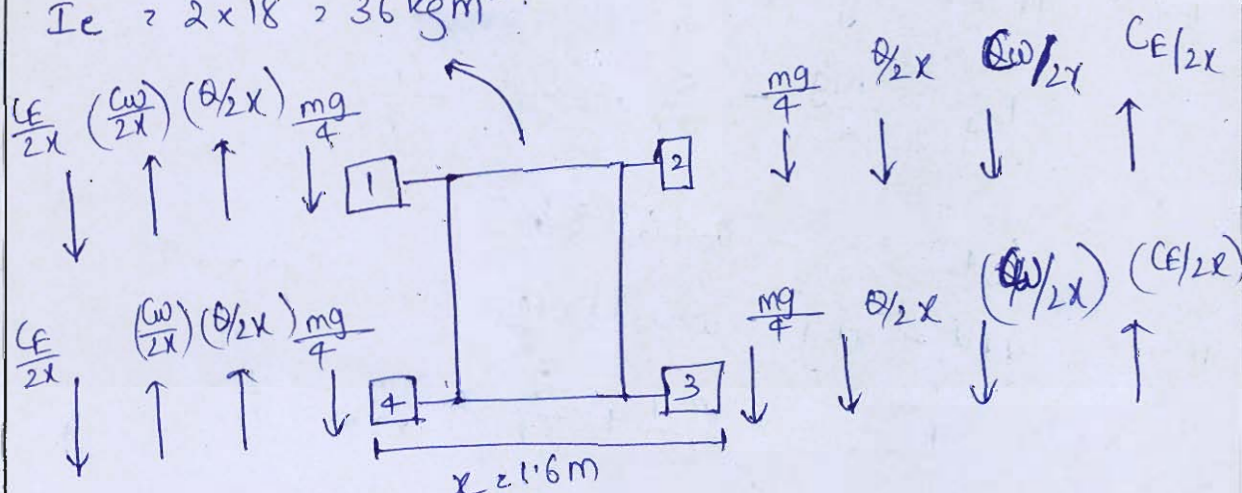 Ie = 2 x 18 = 36 kgm²
CE/2x (Cw/2x) (Q/2x) mg/4
1
2
mg/4 Q/2x Cw/2x CE/2x
CE/2x (Cw/2x) (Q/2x) mg/4
4
3
mg/4 Q/2x (Cw/2x) (CE/2x)
x = 1.6m